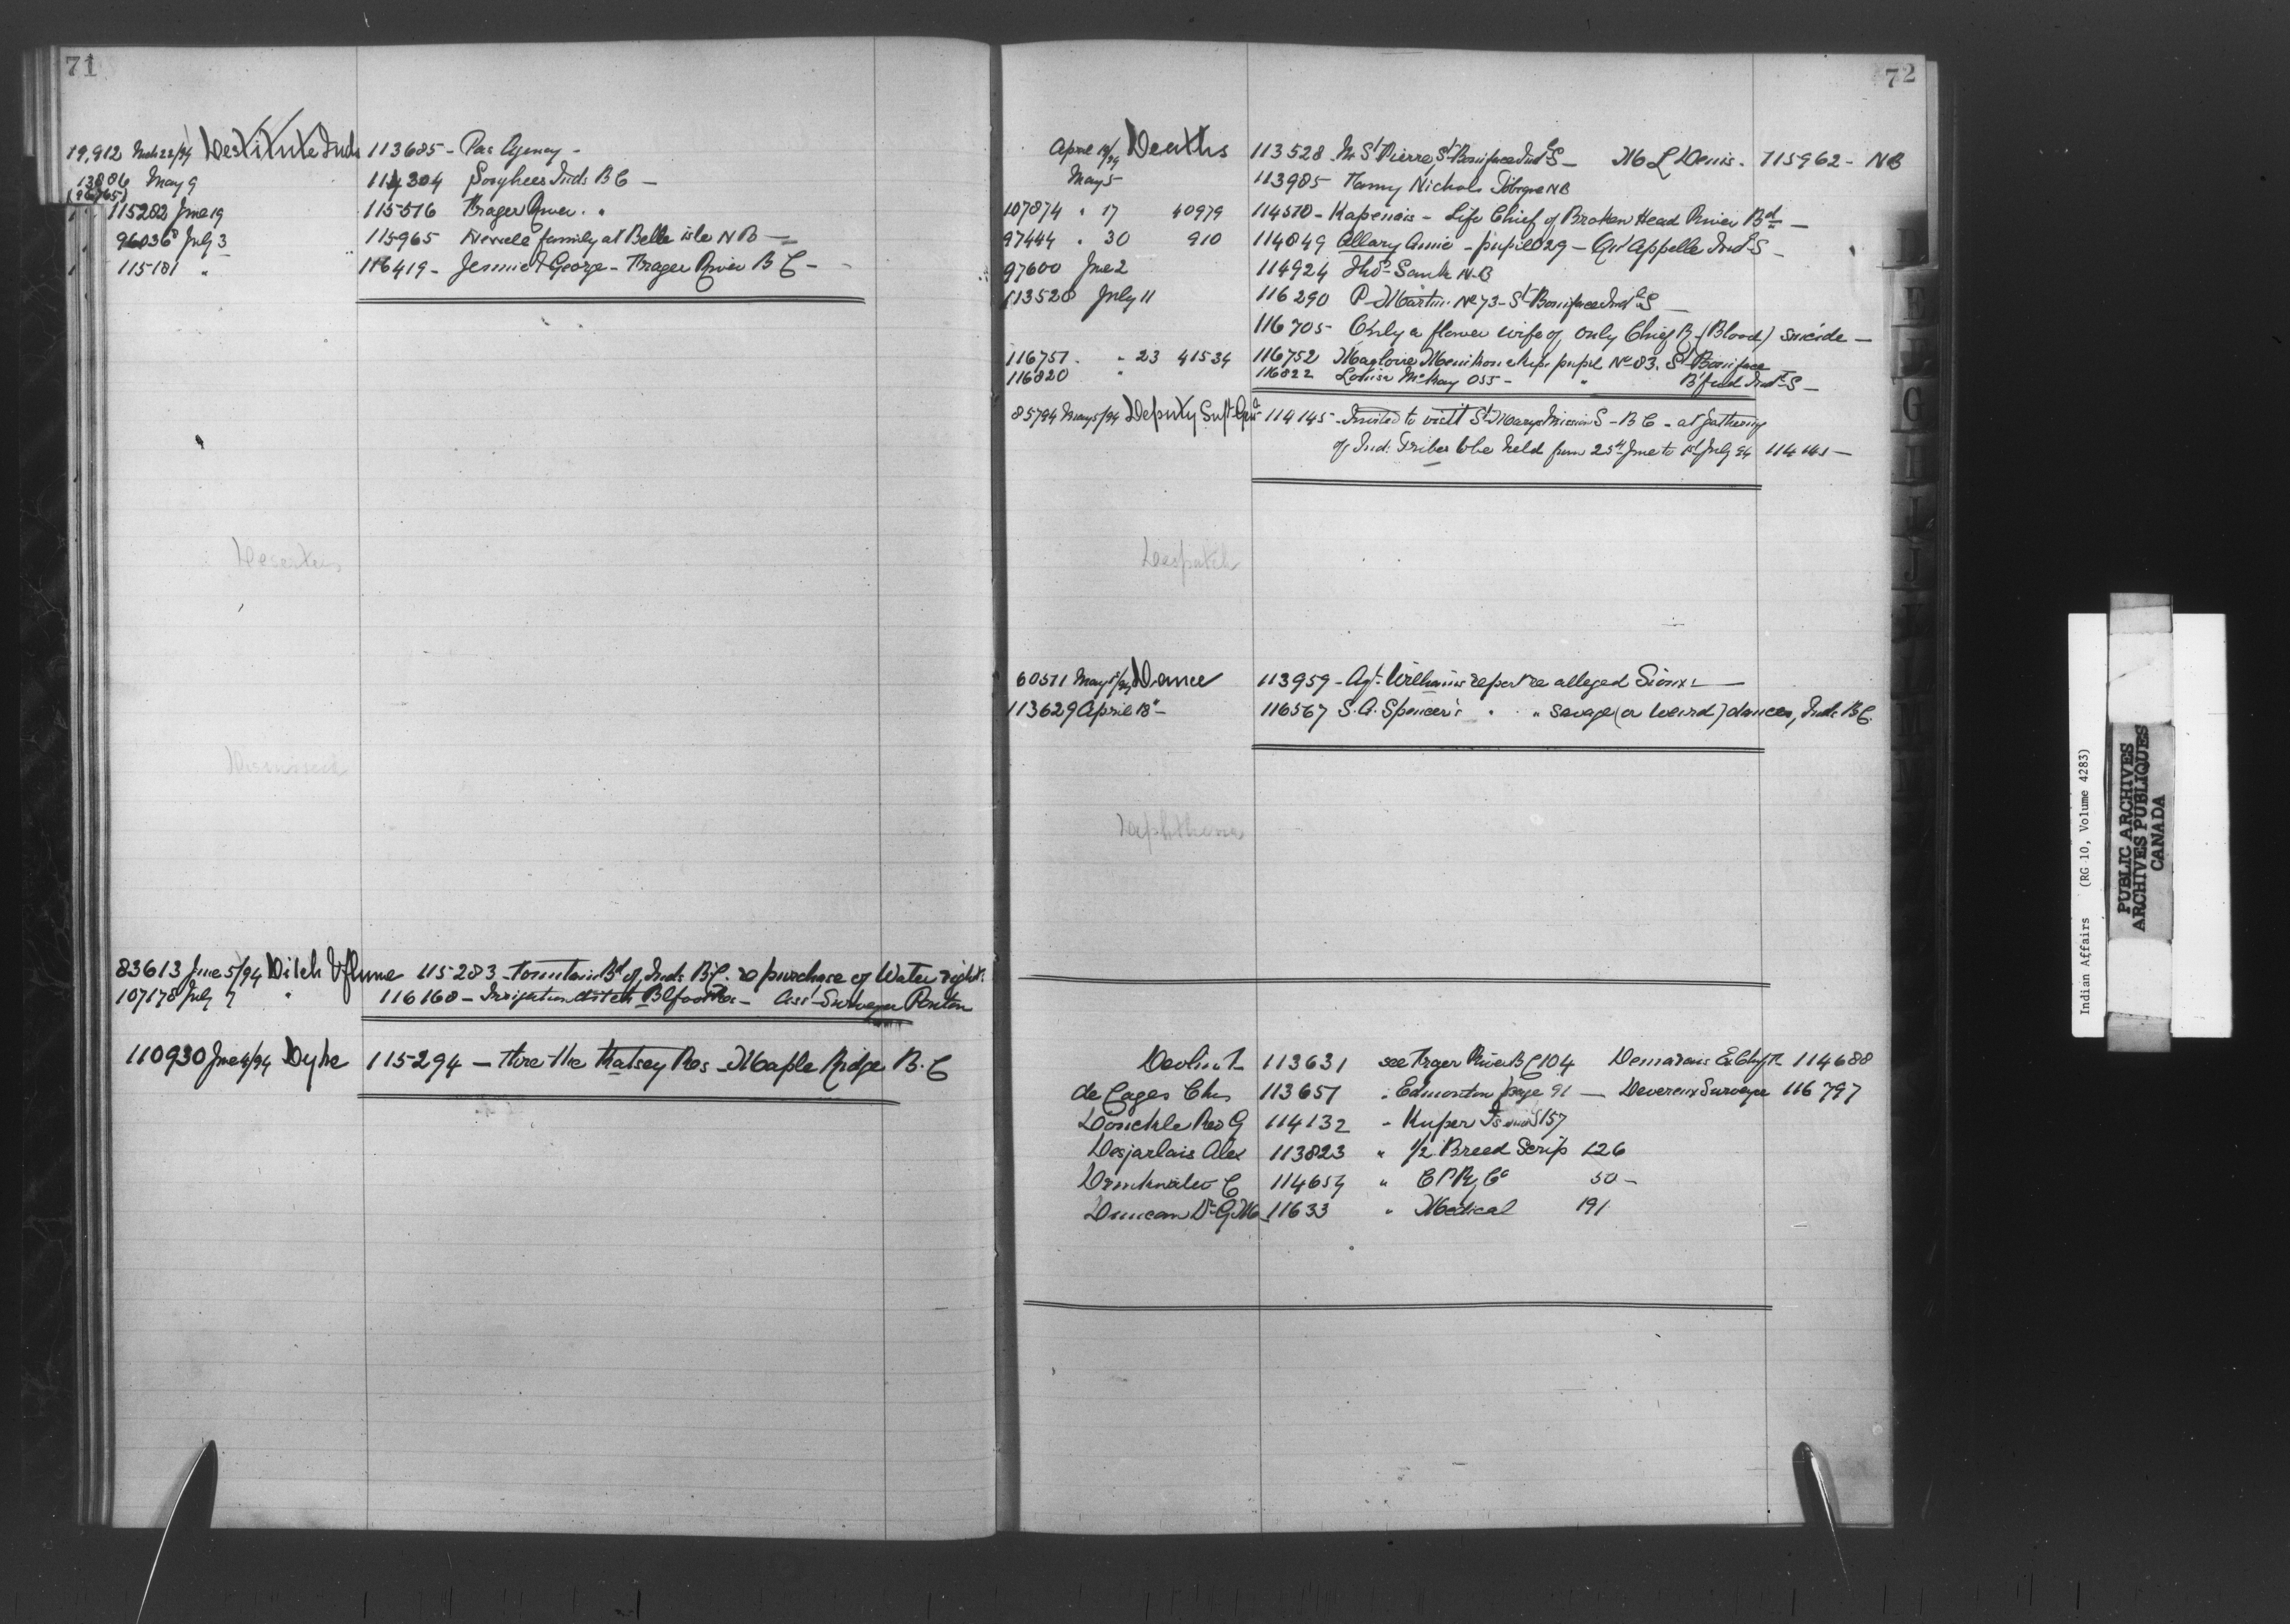 71
19,912 Mch 22/94 Destitute Inds 113685 - Pas Agency -
13886 May 9 114304 Songhees Inds B C -
(96765)
115282 June 19 115516 Frazer River "
96036 July 3 115965 family at Belle isle N B -
115181 " 116419 - Jennie & George - Frazer River B C -
Deserters
Dismissed
83613 June 5/94 Ditch & flume 115283 - Fountain Bd of Inds B.C. re purchase of Water right
107178 July 7 " 116160 - Irrigation ditch Blfoot Res - Assi - Surveyor Ponton
110930 June 4/94 Dyke 115294 - thro the Katsey Res - Maple Ridge B. C
72
April 18/94 Deaths 113528 St Pierre, St Boniface Indl S - M L Denis - 115962 - N B
May 5 113985 Fanny Nichols Tobique N B
107874 " 17 40979 114510 - Kapenais - Life Chief of Broken Head River Bd -
97444 " 30 910 114849 Allary Annie - pupil 029 - Qu'Appelle Indl S -
97600 June 2 114924 Thos Sank N.B
113528 July 11 116290 P - Martin No 73 - St Boniface Indl S -
116705 Only a flower wife of Only Chief B - (Blood) suicide -
116751 " 23 41534 116752 Magloire pupil No 83. St Boniface
116820 " 116822 Louisa McKay 055 - " B'ford Indl S -
85794 May 5/94 Deputy Supt Genl 114145 - Invited to visit St Marys Mission S - B C - at gathering
of Ind: Tribes to be held from 25th June to 1st July 94 114141 -
Despatch
60511 May 5/94 Dance 113959 - Agt. Williams report re alleged Sioux -
113629 April 18 - 116567 S. A. Spencer's " " savage (or weird) dances, Inds B C.
Diphtheria
Devlin 113631 see Frazer River B C 104 Demarais 114688
de Cages Chs 113651 " Edmonton page 91 - Devereux Surveyor 116797
Donckle Rev G 114132 " Kuper Island S 157
Desjarlais Alex 113823 " 1/2 Breed Scrip 126
Drinkwater C 114654 " C P Ry Co 50 -
Duncan Dr G M 11633 " Medical 191
Indian Affairs (RG 10, Volume 4283)
PUBLIC ARCHIVES
ARCHIVES PUBLIQUES
CANADA